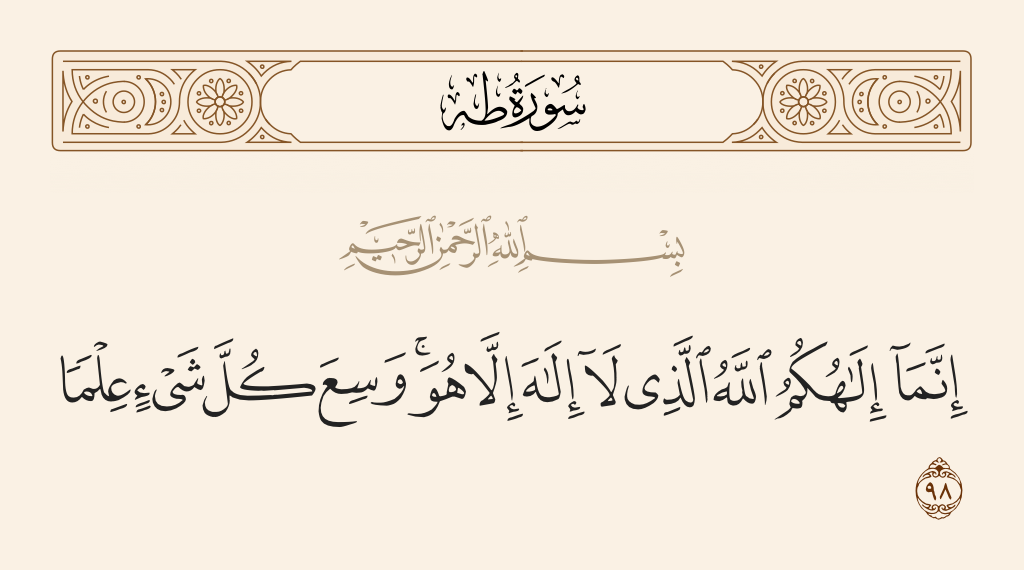 سُورَةُ طه
بِسْمِ ٱللَّهِ ٱلرَّحْمَٰنِ ٱلرَّحِيمِ
إِنَّمَآ إِلَٰهُكُمُ ٱللَّهُ ٱلَّذِى لَآ إِلَٰهَ إِلَّا هُوَ ۚ وَسِعَ كُلَّ شَىْءٍ عِلْمًا
٩٨